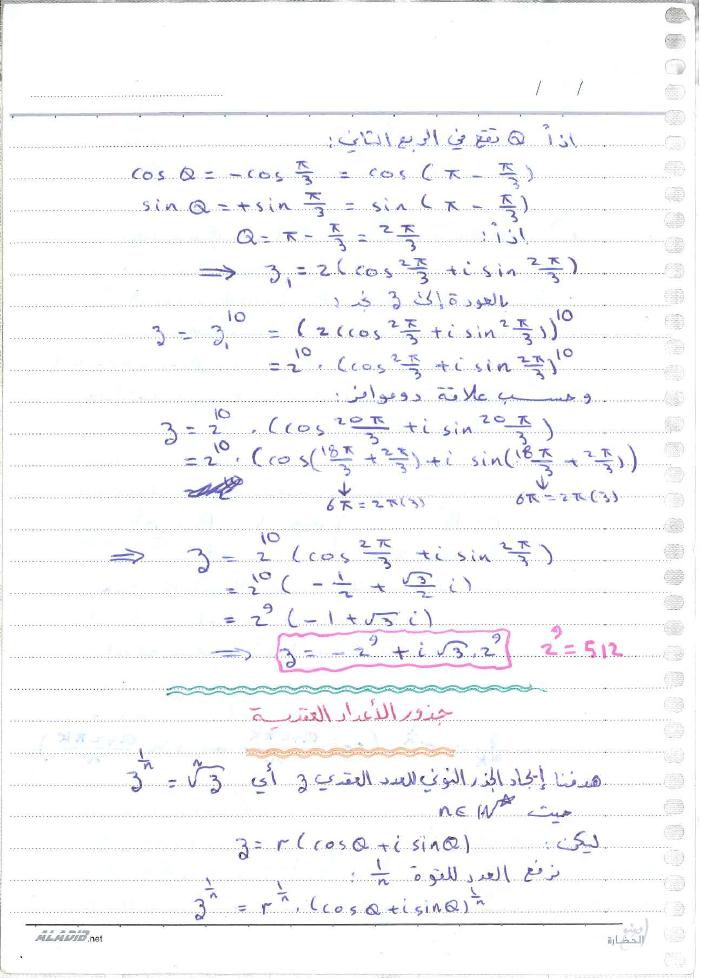 / /
اذاً Q تقع في الربع الثاني:
cos Q = -cos π/3 = cos (π - π/3)
sin Q = +sin π/3 = sin (π - π/3)
اذاً: Q = π - π/3 = 2π/3
⇒ z₁ = 2(cos 2π/3 + i sin 2π/3)
بالعودة إلى z نجد:
z = z₁¹⁰ = (2(cos 2π/3 + i sin 2π/3))¹⁰
= 2¹⁰ . (cos 2π/3 + i sin 2π/3)¹⁰
وحسب علاقة دوموافر:
z = 2¹⁰ . (cos 20π/3 + i sin 20π/3)
= 2¹⁰ . (cos(18π/3 + 2π/3) + i sin(18π/3 + 2π/3))
6π = 2π(3) 6π = 2π(3)
⇒ z = 2¹⁰ (cos 2π/3 + i sin 2π/3)
= 2¹⁰ ( - 1/2 + √3/2 i)
= 2⁹ (-1 + √3 i)
⇒ z = -2⁹ + i √3 . 2⁹ 2⁹ = 512
جذور الأعداد العقدية
هدفنا إيجاد الجذر النوني للعدد العقدي z أي z^(1/n) = ⁿ√z
حيث n ∈ ℕ*
ليكن: z = r (cos Q + i sin Q)
نرفع العدد للقوة 1/n :
z^(1/n) = r^(1/n) . (cos Q + i sin Q)^(1/n)
ALADIB.net
الحضارة